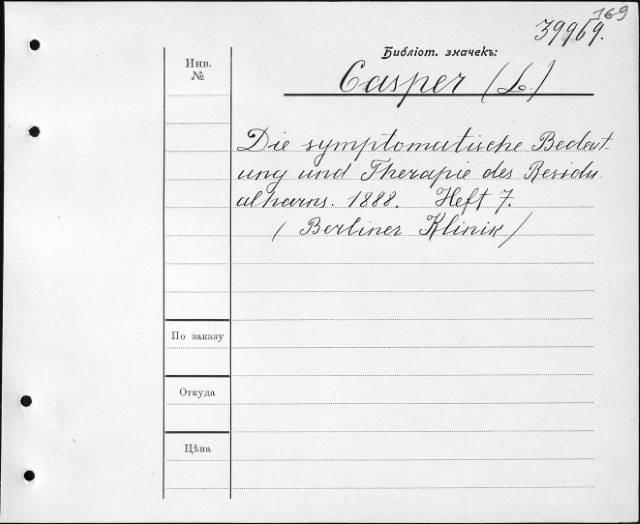 169
39969.
Библіот. значекъ:
Инв.
№
Casper (L.)
Die symptomatische Bedeut-
ung und Therapie des Residu-
alharns. 1888. Heft 7.
(Berliner Klinik)
По заказу
Откуда
Цѣна